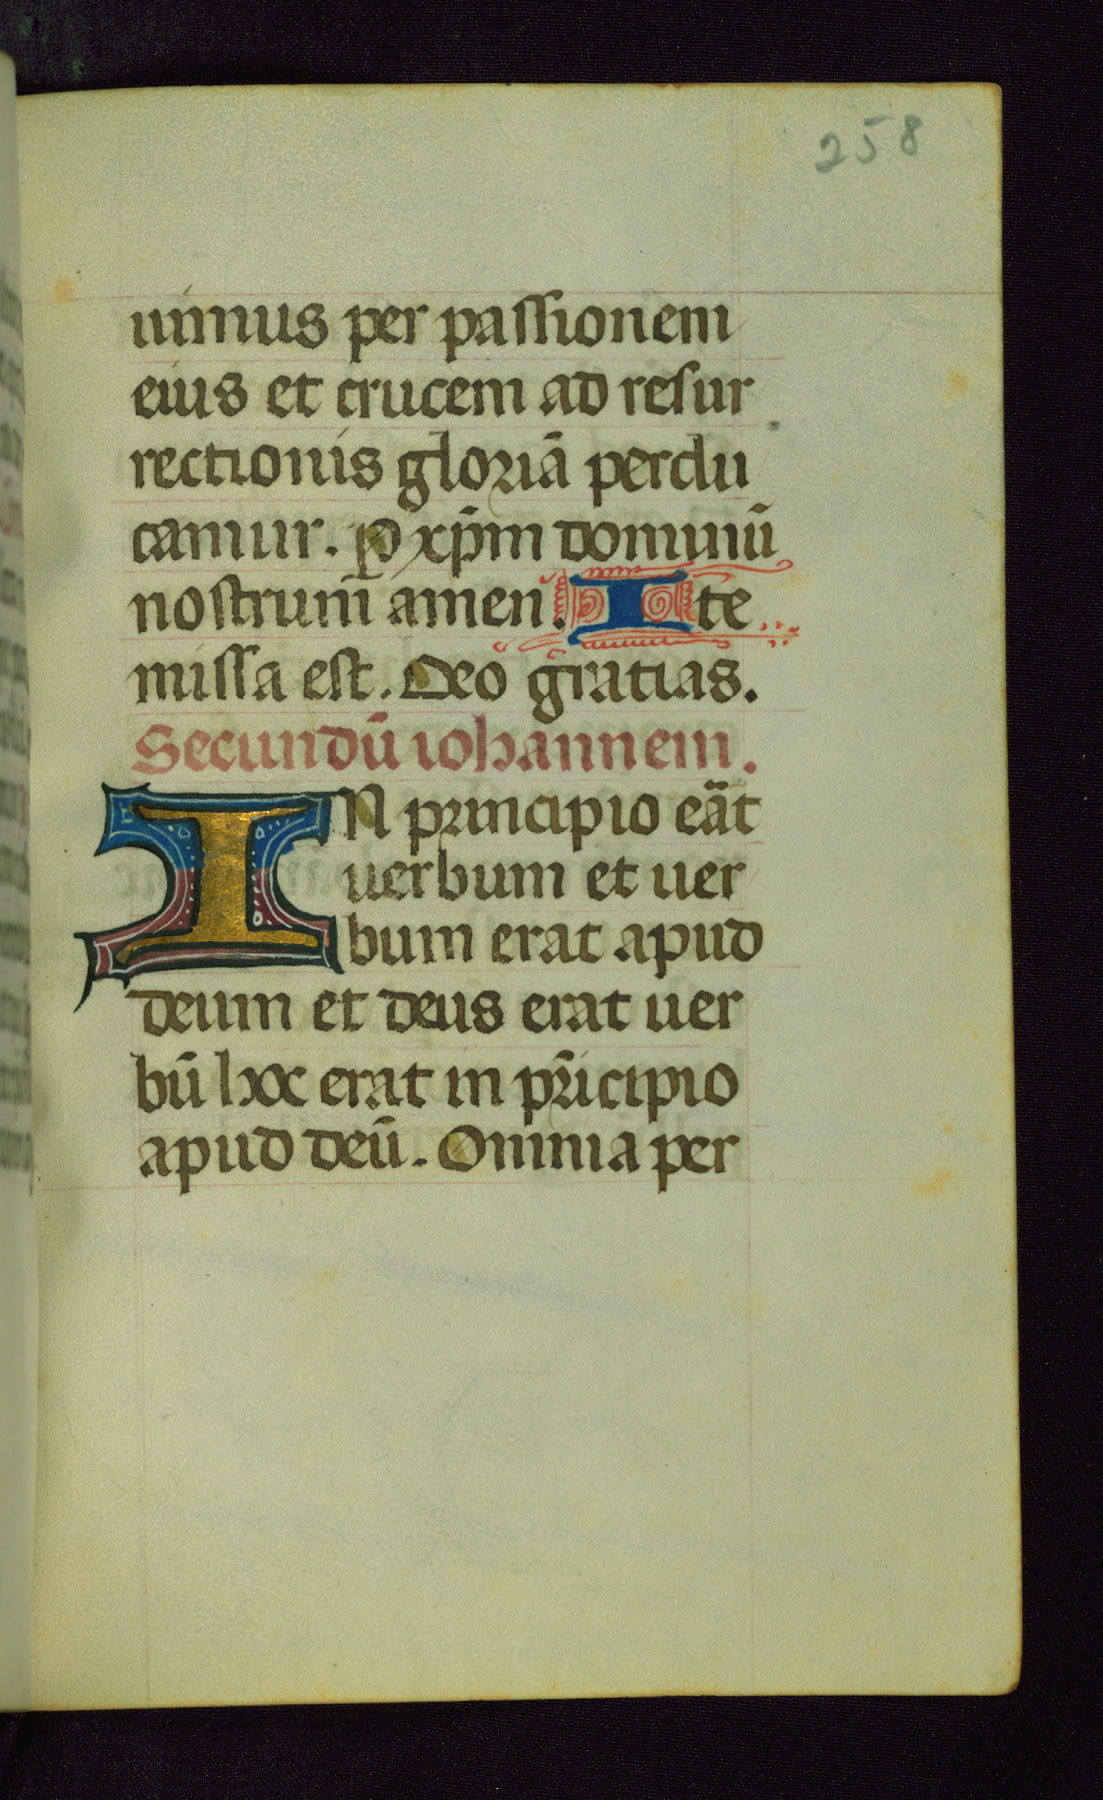 258
uimus per passionem
eius et crucem ad resur
rectionis gloriã perdu
camur. P xp̃m dominũ
nostrum̃ amen. Ite
missa est. Deo gratias.
Secundũ iohannem.
IN principio eãt
uerbum et uer
bum erat apud
deum et deus erat uer
bũ hoc erat in pr̃icipio
apud deũ. Omnia per